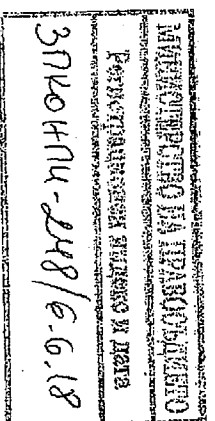 МИНИСТЕРСТВО НА ПРАВОСЪДИЕТО
Регистрационен индекс и дата
248/6.6.18